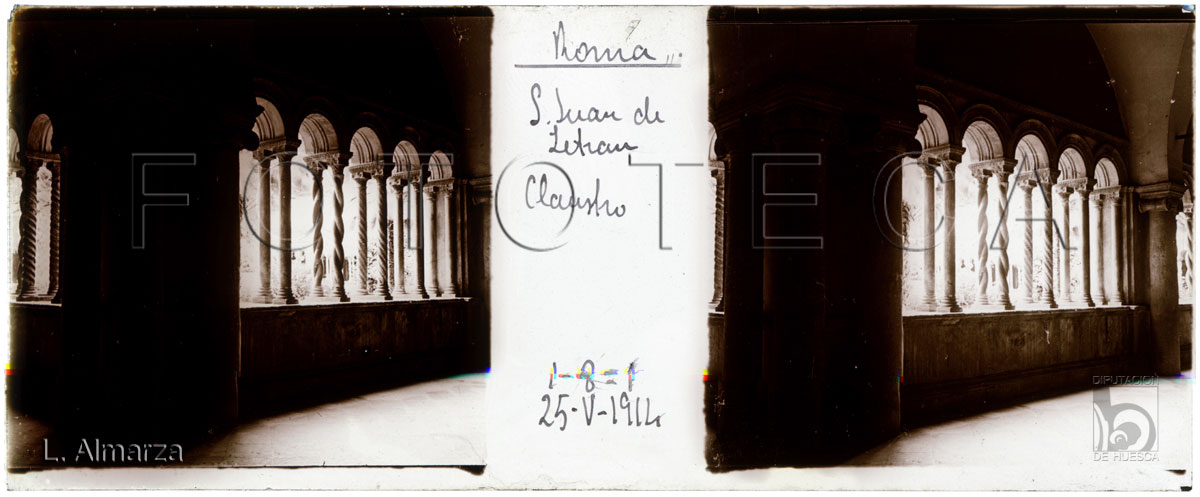 Roma
S. Juan de
Letran
Claustro
FOTOTECA
1-8-1
25-V-1914
L. Almarza
DIPUTACIÓN
DE HUESCA